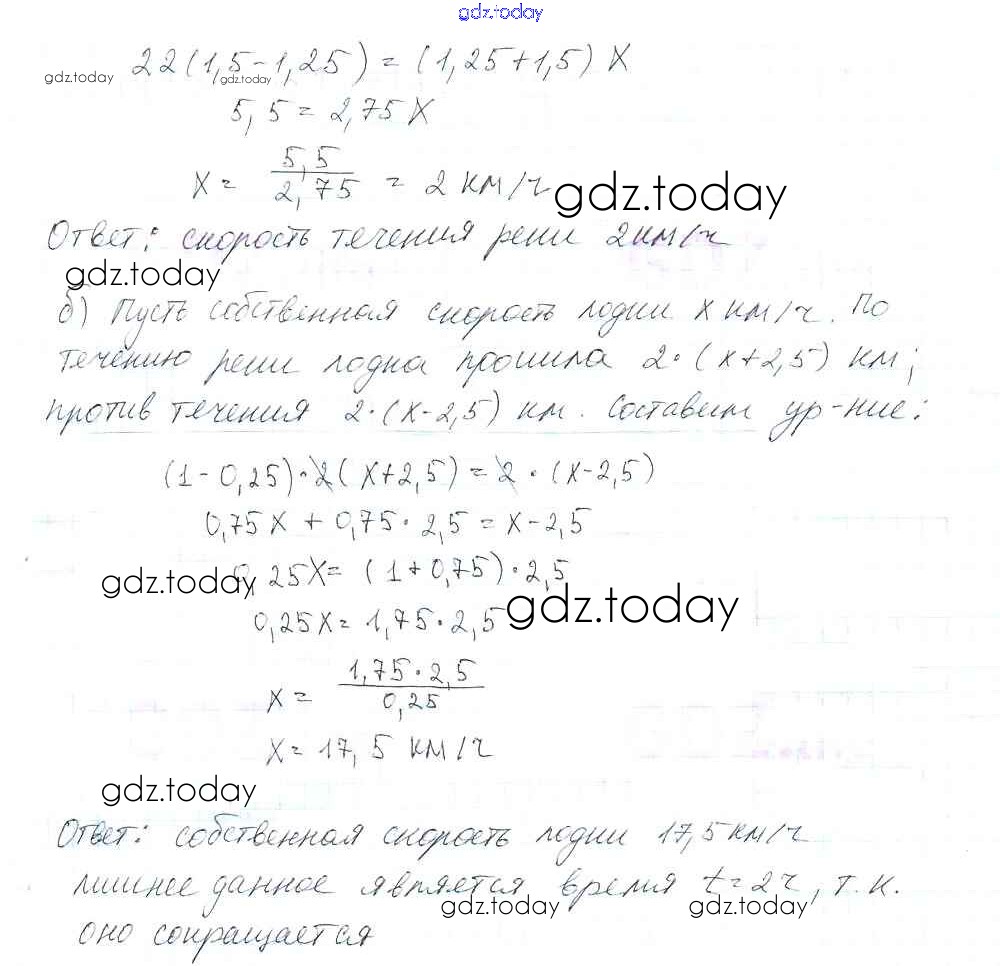 gdz.today
22(1,5-1,25) = (1,25+1,5) X
gdz.today gdz.today
5,5 = 2,75 X
X = 5,5/2,75 = 2 км/ч
gdz.today
Ответ: скорость течения реки 2 км/ч
gdz.today
б) Пусть собственная скорость лодки х км/ч. По
течению реки лодка прошла 2·(х+2,5) км;
против течения 2·(х-2,5) км. Составим ур-ние:
(1-0,25)·2(х+2,5) = 2·(х-2,5)
0,75X + 0,75·2,5 = X-2,5
gdz.today 0,25X = (1+0,75)·2,5
0,25X = 1,75·2,5 gdz.today
X = 1,75·2,5/0,25
X = 17,5 км/ч
gdz.today
Ответ: собственная скорость лодки 17,5 км/ч
лишнее данное является время t=2ч, т.к.
gdz.today gdz.today
оно сокращается